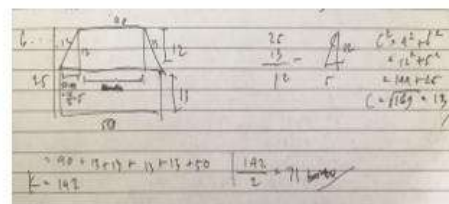 6.
40
13 12 13 12
25
5
13
50
25
13 -
12
12
5
c² = a² + b²
= 12² + 5²
= 144 + 25
c = √169 = 13
= 40 + 13 + 13 + 13 + 13 + 50
K = 142
142
2 = 71